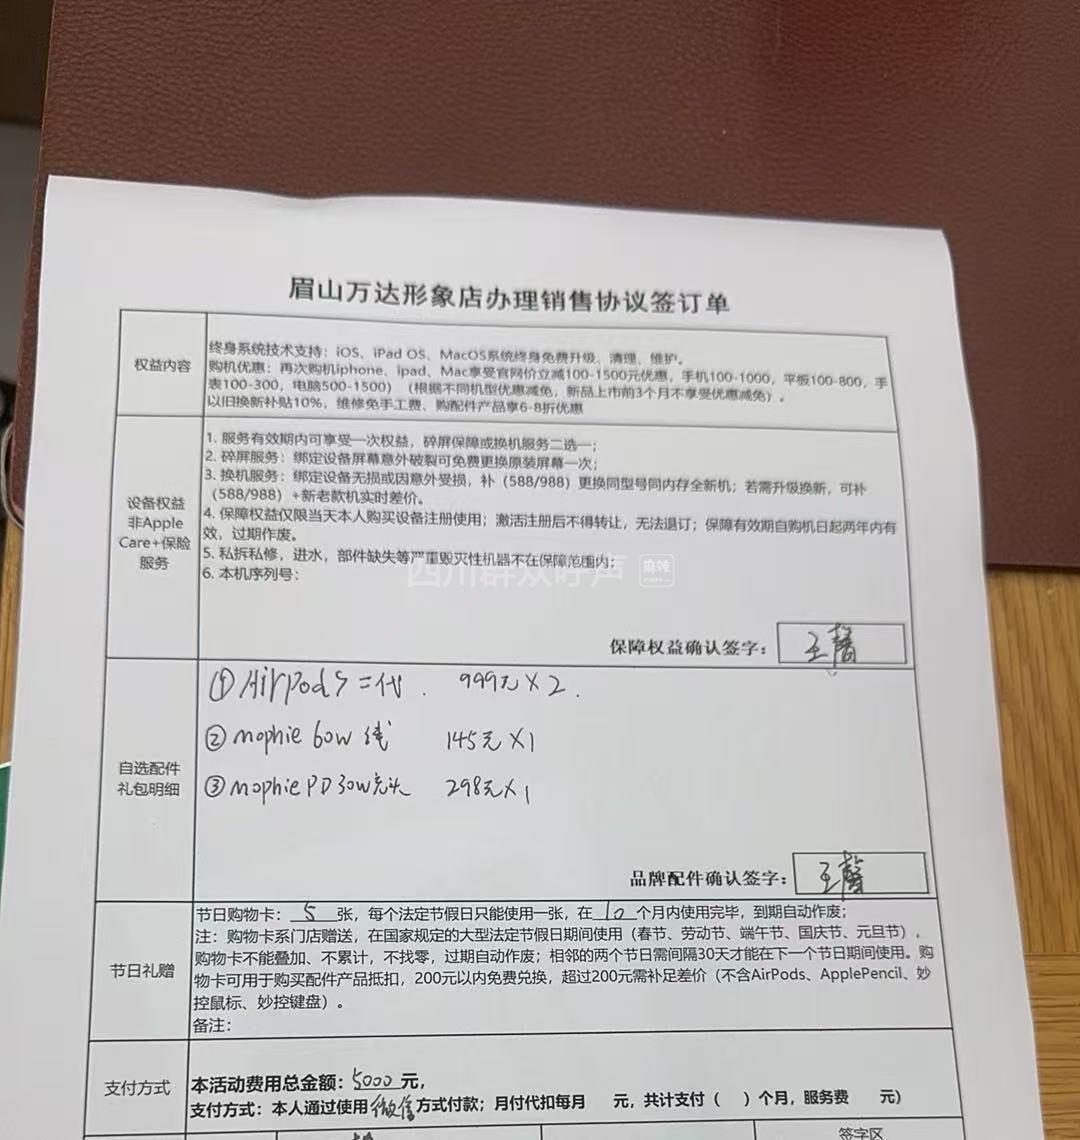 眉山万达形象店办理销售协议签订单
权益内容
终身系统技术支持：iOS、iPad OS、MacOS系统终身免费升级、清理、维护。
购机优惠：再次购机iphone、ipad、Mac享受官网价立减100-1500元优惠，手机100-1000，平板100-800，手
表100-300，电脑500-1500）（根据不同机型优惠减免，新品上市前3个月不享受优惠减免）。
以旧换新补贴10%，维修免手工费、购配件产品享6-8折优惠
设备权益
非Apple
Care+保险
服务
1. 服务有效期内可享受一次权益，碎屏保障或换机服务二选一；
2. 碎屏服务：绑定设备屏幕意外破裂可免费更换原装屏幕一次；
3. 换机服务：绑定设备无损或因意外受损，补（588/988）更换同型号同内存全新机；若需升级换新，可补
（588/988）+新老款机实时差价。
4. 保障权益仅限当天本人购买设备注册使用；激活注册后不得转让，无法退订；保障有效期自购机日起两年内有
效，过期作废。
5. 私拆私修，进水，部件缺失等严重毁灭性机器不在保障范围内；
6. 本机序列号：
四川群众呼声 麻辣
保障权益确认签字： 王馨
自选配件
礼包明细
① AirPods 二代． 999元×2．
② mophie 60w 线 145元×1
③ mophie PD 30w充头 298元×1
品牌配件确认签字： 王馨
节日礼赠
节日购物卡： 5 张，每个法定节假日只能使用一张，在 10 个月内使用完毕，到期自动作废；
注：购物卡系门店赠送，在国家规定的大型法定节假日期间使用（春节、劳动节、端午节、国庆节、元旦节），
购物卡不能叠加、不累计，不找零，过期自动作废；相邻的两个节日需间隔30天才能在下一个节日期间使用。购
物卡可用于购买配件产品抵扣，200元以内免费兑换，超过200元需补足差价（不含AirPods、ApplePencil、妙
控鼠标、妙控键盘）。
备注：
支付方式
本活动费用总金额：5000元，
支付方式：本人通过使用微信方式付款；月付代扣每月 元，共计支付（ ）个月，服务费 元）
签字区